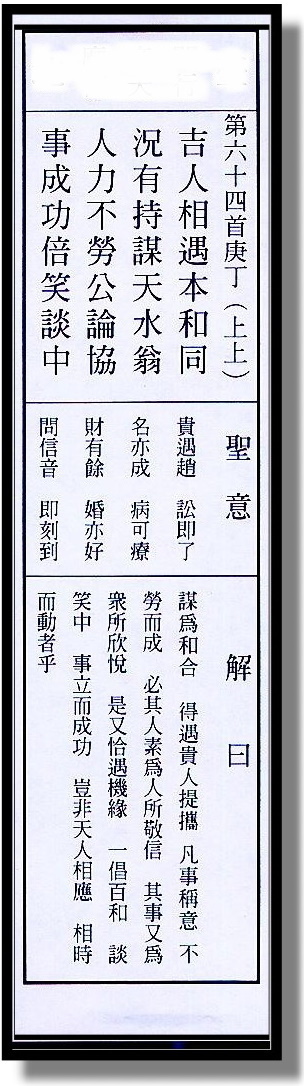 第六十四首庚丁（上上）
吉人相遇本和同
況有持謀天水翁
人力不勞公論協
事成功倍笑談中
聖意
貴遇趙 訟即了
名亦成 病可療
財有餘 婚亦好
問信音 即刻到
解曰
謀爲和合 得遇貴人提攜 凡事稱意 不
勞而成 必其人素爲人所敬信 其事又爲
衆所欣悅 是又恰遇機緣 一倡百和 談
笑中 事立而成功 豈非天人相應 相時
而動者乎